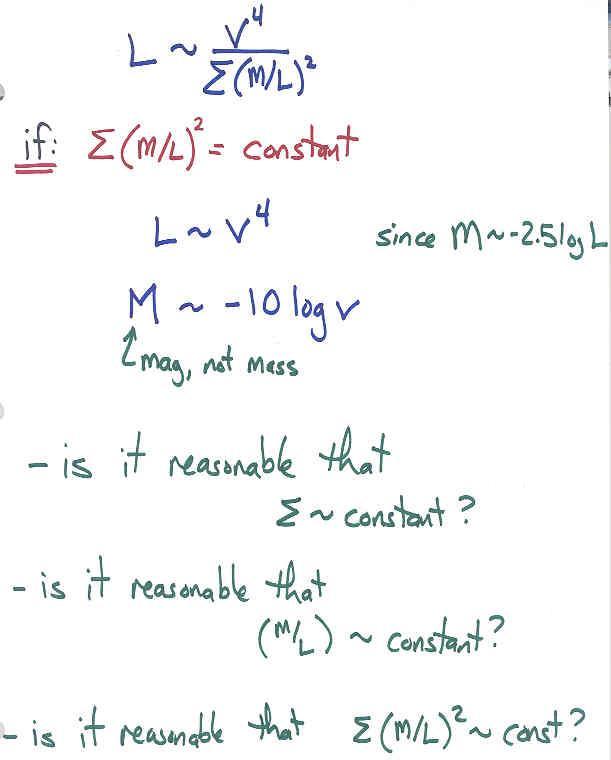 L ~ V⁴ / Σ(M/L)²
if: Σ(M/L)² = constant
L ~ V⁴ since M ~ -2.5 log L
M ~ -10 log V
mag, not mass
- is it reasonable that
Σ ~ constant?
- is it reasonable that
(M/L) ~ constant?
- is it reasonable that Σ(M/L)² ~ const?